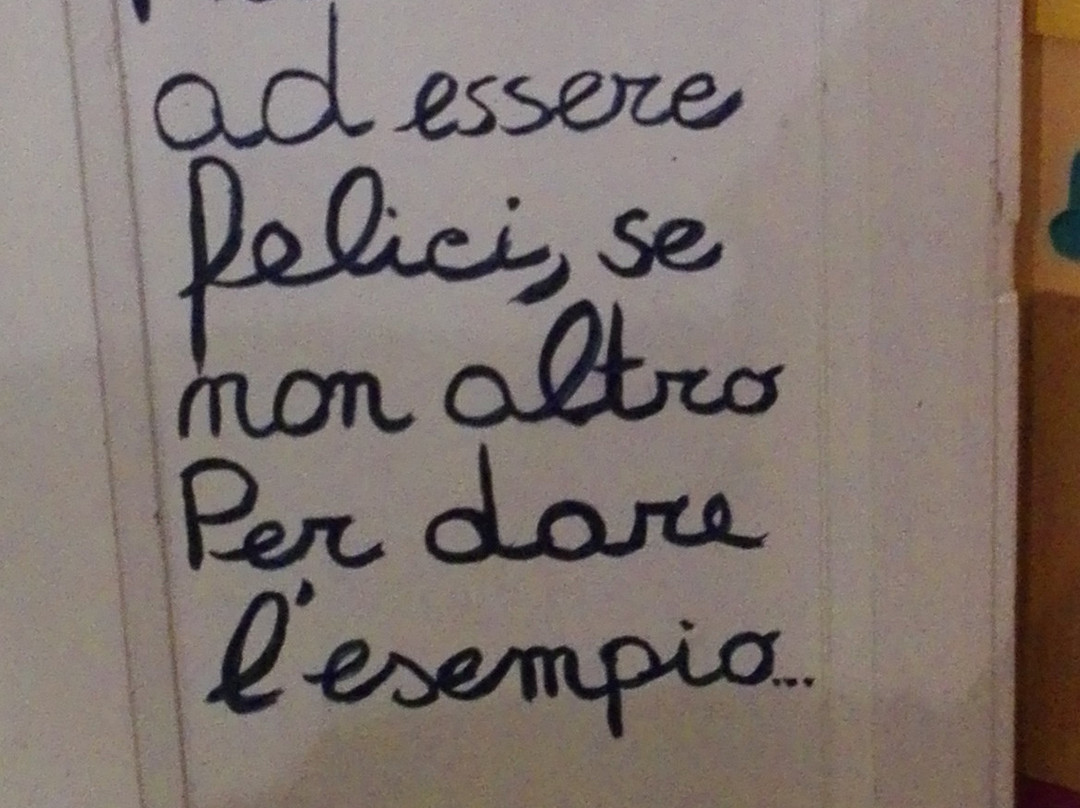 ad essere
felici, se
non altro
Per dare
l'esempio...